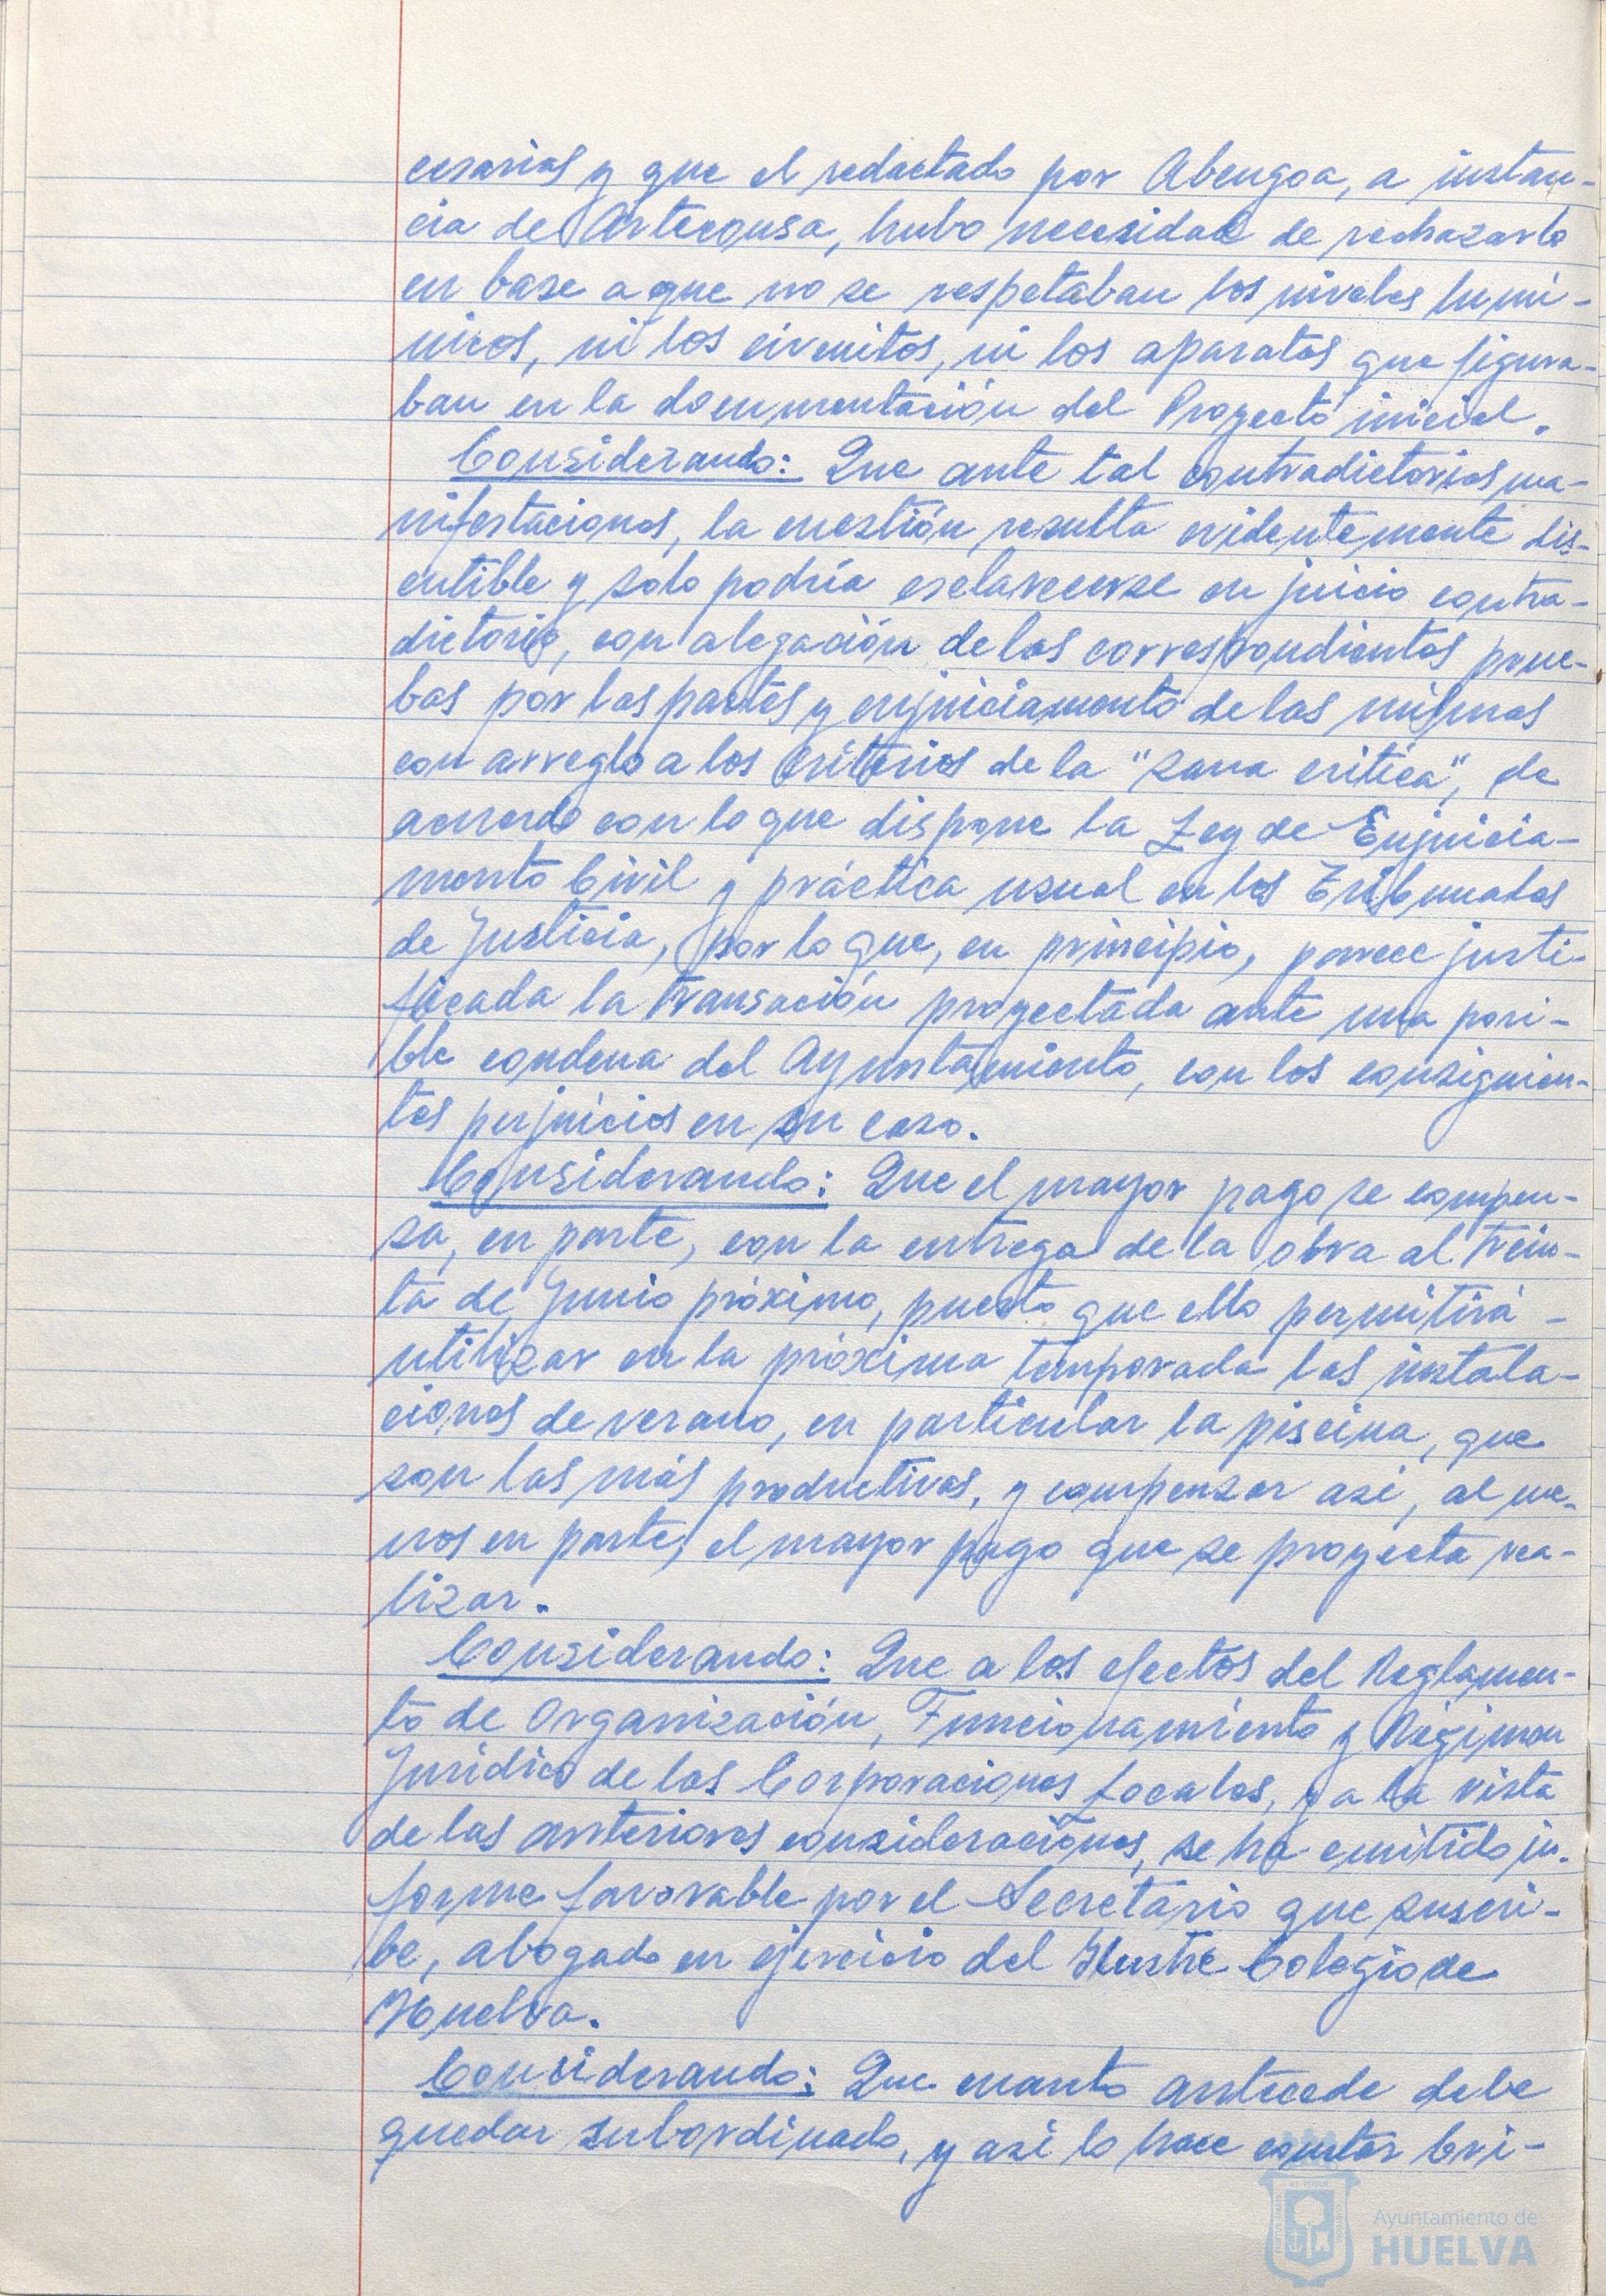 cesarios y que el redactado por Abengoa, a instan-
cia de Artecousa, hubo necesidad de rechazarlo
en base a que no se respetaban los niveles lumí-
nicos, ni los circuitos, ni los aparatos que figura-
ban en la documentación del Proyecto inicial.
Considerando: Que ante tal contradictorias ma-
nifestaciones, la cuestión resulta evidentemente dis-
cutible y solo podría esclarecerse en juicio contra-
dictorio, con alegación de las correspondientes prue-
bas por las partes y enjuiciamento de las mismas
con arreglo a los criterios de la "sana critica", de
acuerdo con lo que dispone la Ley de Enjuicia-
mento Civil y práctica usual en los Tribunales
de Justicia, por lo que, en principio, parece justi-
ficada la transación proyectada ante una posi-
ble condena del Ayuntamiento, con los consiguien-
tes perjuicios en su caso.
Considerando: Que el mayor pago se compen-
sa, en parte, con la entrega de la obra al trein-
ta de Junio próximo, puesto que ello permitirá -
utilizar en la próxima temporada las instala-
ciones de verano, en particular la piscina, que
son las más productivas, y compensar asi, al me-
nos en parte, el mayor pago que se proyecta rea-
lizar.
Considerando: Que a los efectos del Reglamen-
to de Organización, Funcionamiento y Régimen
Jurídico de las Corporaciones Locales, y a la vista
de las anteriores consideraciones, se ha emitido in-
forme favorable por el Secretario que suscri-
be, abogado en ejercicio del Ilustre Colegio de
Huelva.
Considerando: Que cuanto antecede debe
quedar subordinado, y asi lo hace constar Cri-
Ayuntamiento de
HUELVA